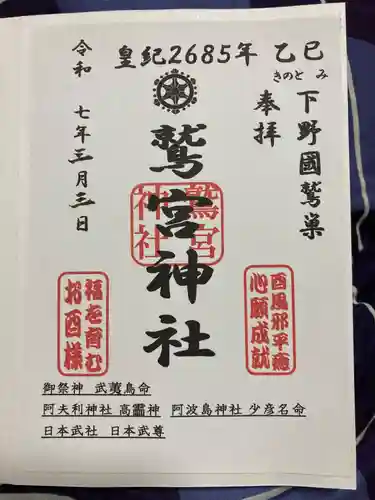 皇紀2685年 乙巳
きのと み
下野國鷲巣
奉拝
鷲宮神社
鷲宮神社
令和 七年三月三日
酉風邪平癒
心願成就
福を首む
お酉様
御祭神 武夷鳥命
阿夫利神社 高龗神 阿波島神社 少彦名命
日本武社 日本武尊